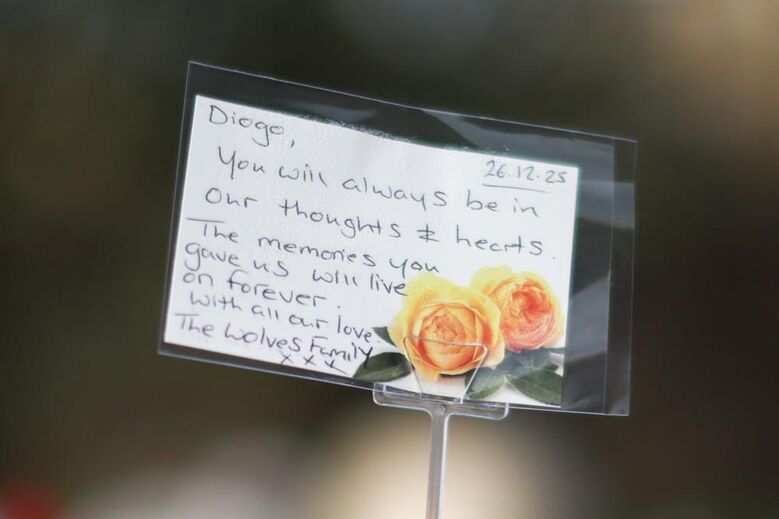 Diogo,
26.12.25
You will always be in
our thoughts & hearts.
The memories you
gave us will live
on forever.
With all our love.
The Wolves Family
x x x